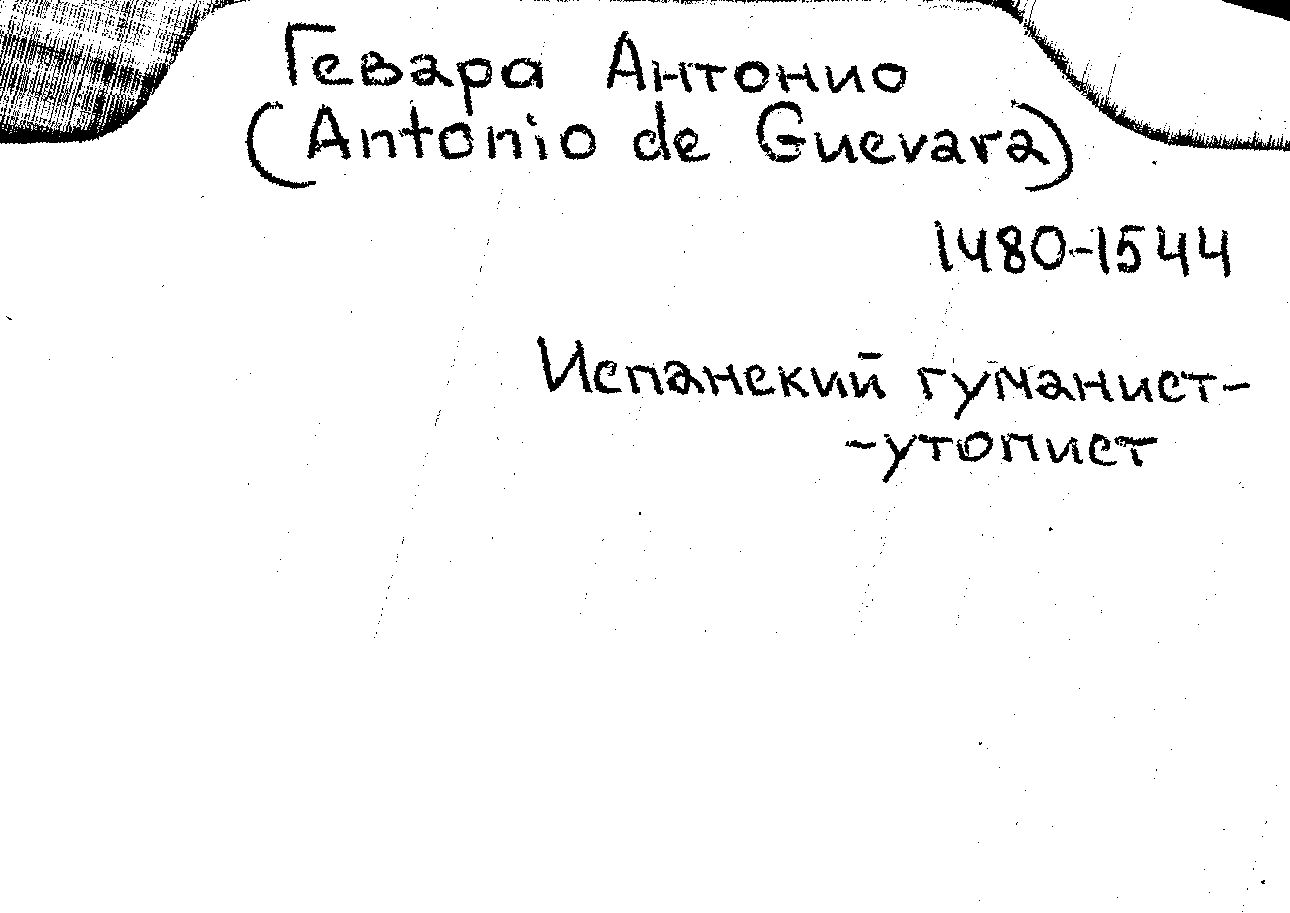 Гевара Антонио
(Antonio de Guevara)
1480-1544
Испанский гуманист-
-утопист